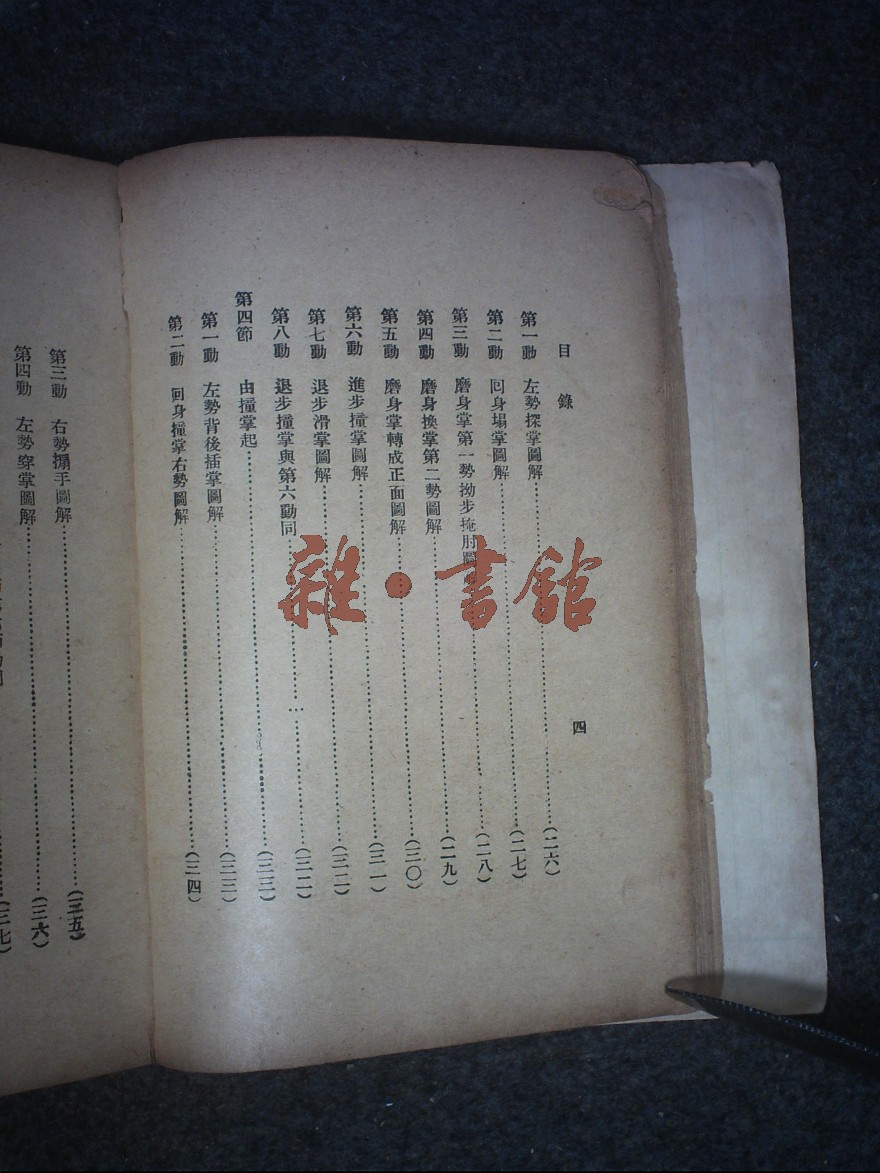 目錄
四
第一動 左勢探掌圖解……(二六)
第二動 回身塌掌圖解……(二七)
第三動 磨身掌第一勢拗步掩肘圖……(二八)
第四動 磨身換掌第二勢圖解……(二九)
第五動 磨身掌轉成正面圖解……(三〇)
第六動 進步撞掌圖解……(三一)
第七動 退步滑掌圖解……(三二)
第八動 退步撞掌與第六動同……(三二)
第四節 由撞掌起……(三三)
第一動 左勢背後插掌圖解……(三三)
第二動 回身撞掌右勢圖解……(三四)
第三動 右勢搨手圖解……(三五)
第四動 左勢穿掌圖解……(三六)
(三七)
雜·書館